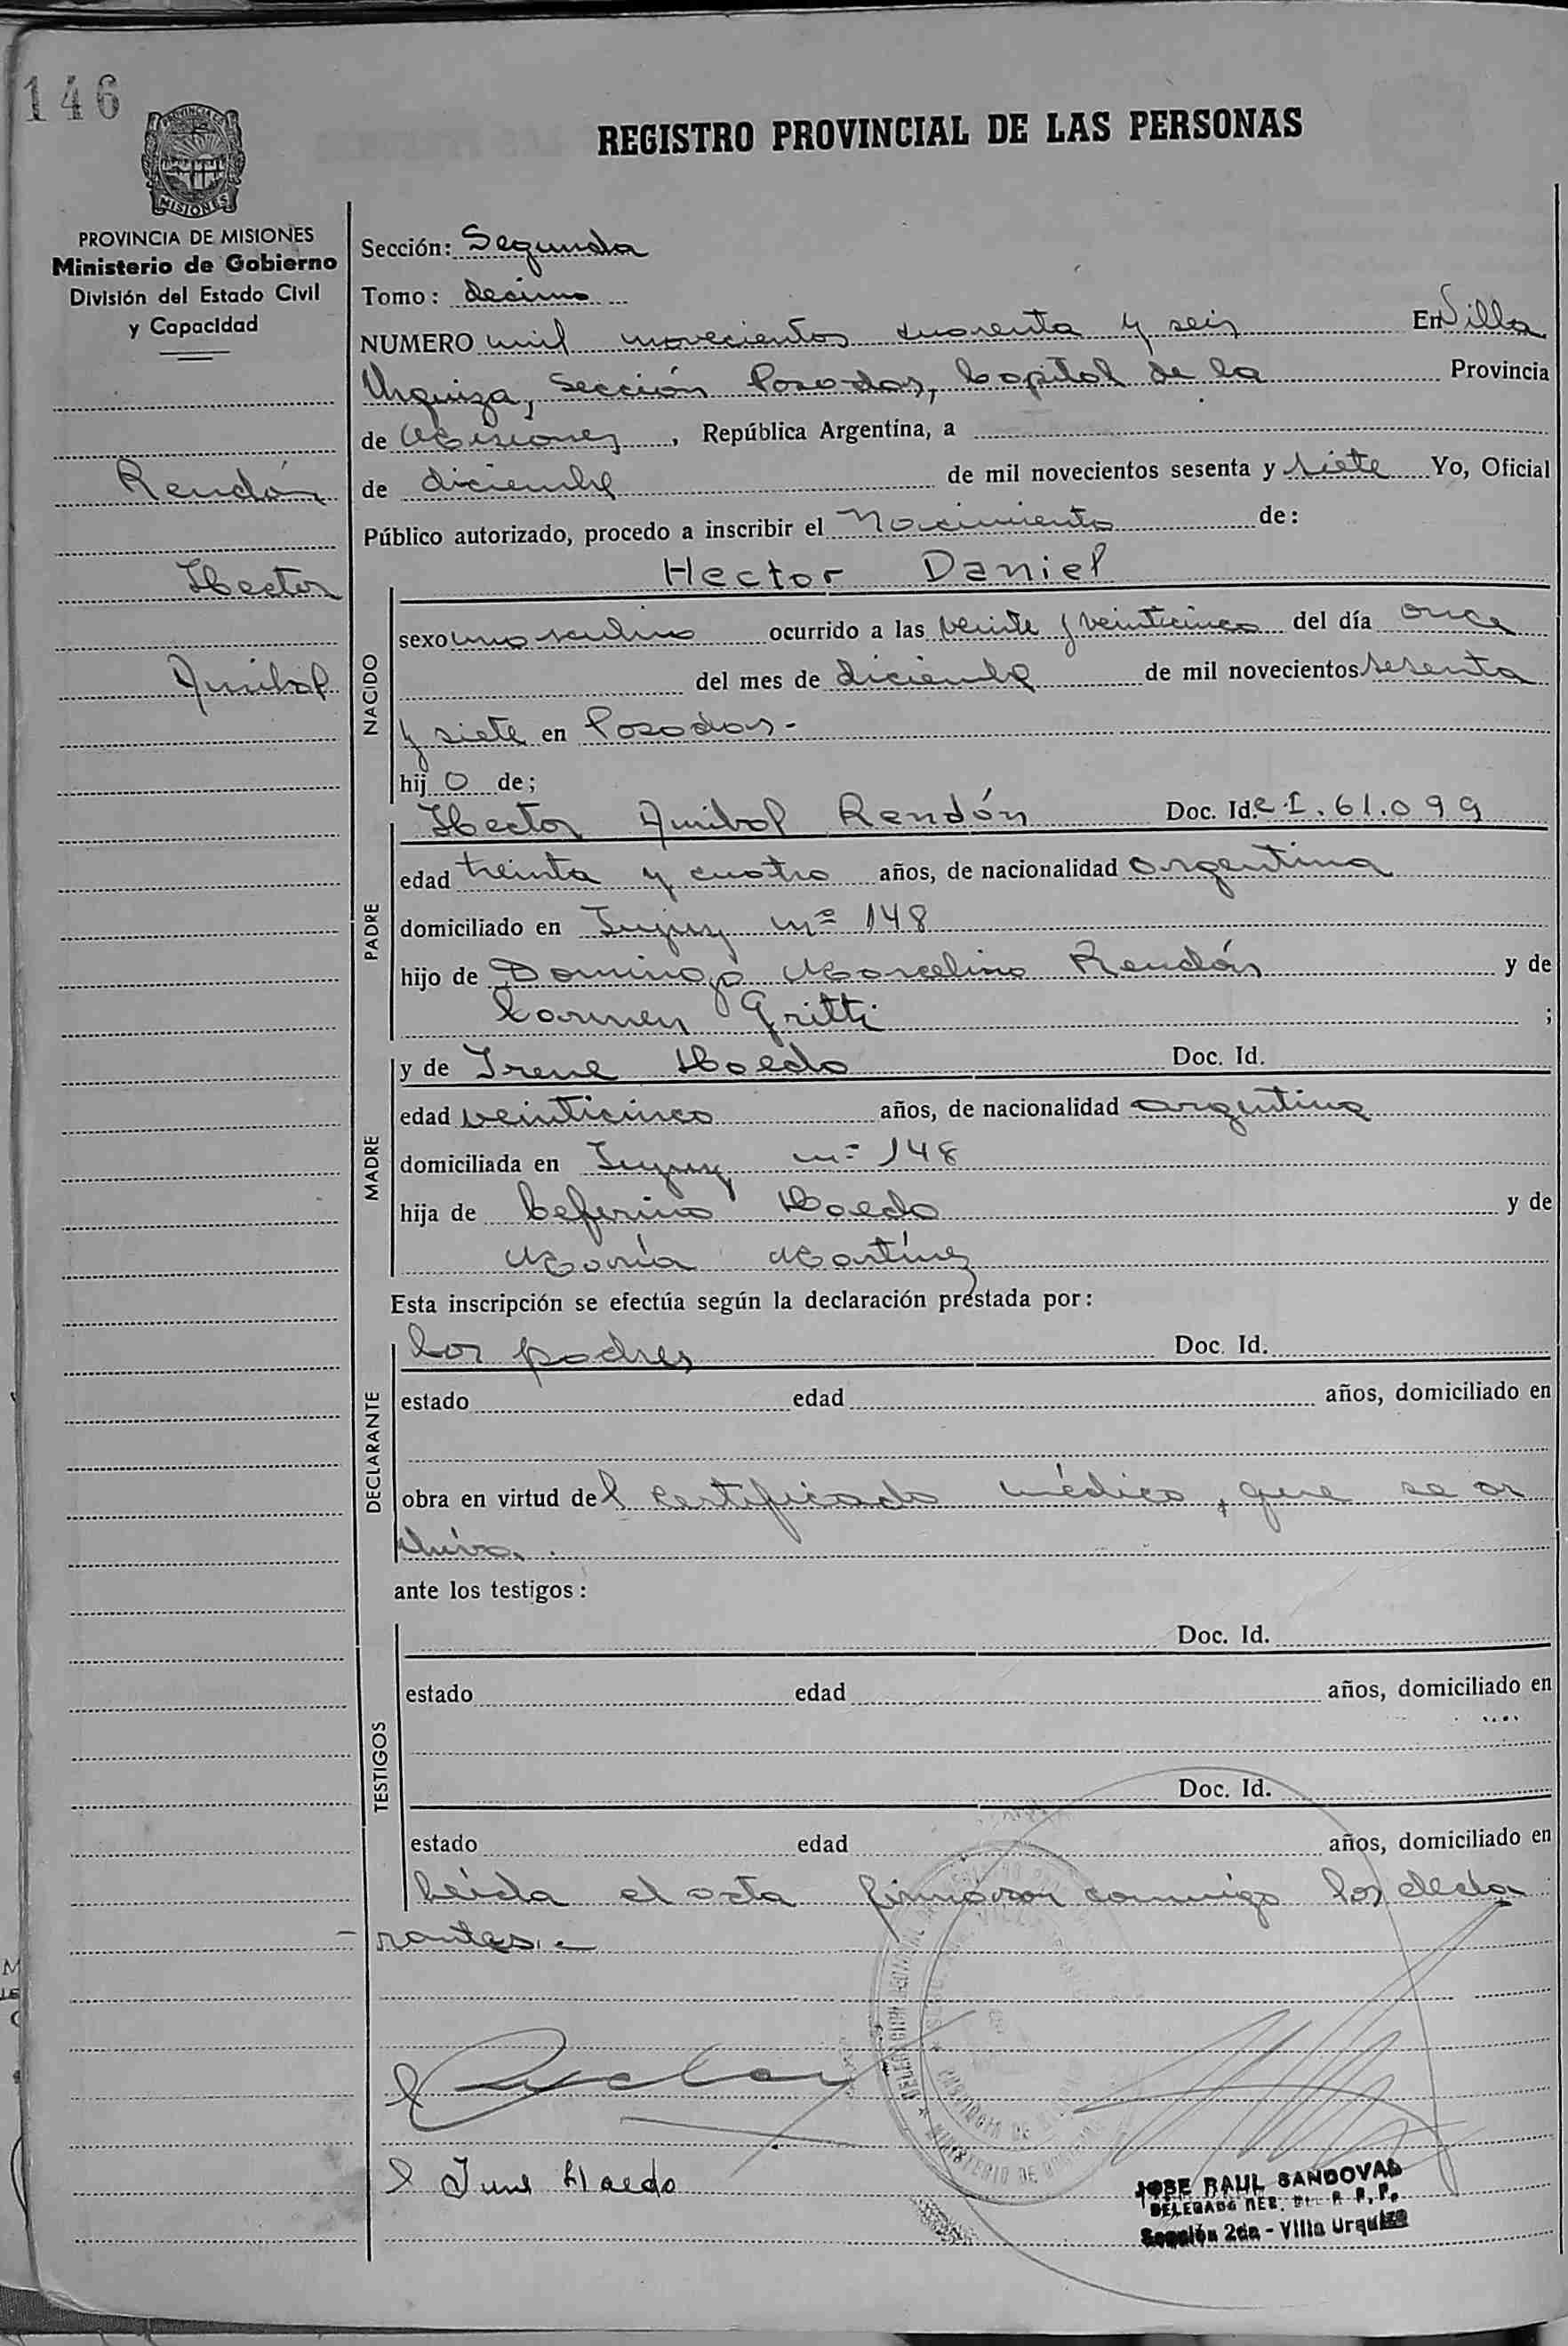 146
REGISTRO PROVINCIAL DE LAS PERSONAS
PROVINCIA DE MISIONES
Ministerio de Gobierno
División del Estado Civil
y Capacidad
Rendón
Hector
Anibal
Sección: Segunda
Tomo: decimo
NUMERO mil novecientos cuarenta y seis En Villa
Urquiza, Sección Posadas, Capital de la Provincia
de Misiones, República Argentina, a
de diciembre de mil novecientos sesenta y siete Yo, Oficial
Público autorizado, procedo a inscribir el Nacimiento de:
Hector Daniel
NACIDO
sexo masculino ocurrido a las veinte y veinticinco del día once
del mes de diciembre de mil novecientos sesenta
y siete en Posadas-
hijo de;
PADRE
Hector Anibal Rendón Doc. Id. C.I. 61.099
edad treinta y cuatro años, de nacionalidad argentina
domiciliado en Jujuy nº 148
hijo de Domingo Marcelino Rendón y de
Carmen Gritti ;
MADRE
y de Irene Haedo Doc. Id.
edad veinticinco años, de nacionalidad argentina
domiciliada en Jujuy nº 148
hija de Ceferino Haedo y de
María Martínez
Esta inscripción se efectúa según la declaración prestada por:
DECLARANTE
los padres Doc. Id.
estado edad años, domiciliado en
obra en virtud del certificado médico, que se ar
chiva.
ante los testigos:
TESTIGOS
Doc. Id.
estado edad años, domiciliado en
Doc. Id.
estado edad años, domiciliado en
Leída el acta firmaron conmigo los decla
rantes.-
Irene Haedo
JOSE RAUL SANDOVAL
DELEGADO
Sección 2da - Villa Urquiza